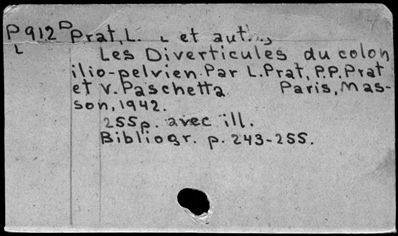 P912D Prat, L. et aut.
L Les Diverticules du colon
ilio-pelvien. Par L. Prat, P.P. Prat
et V. Paschetta Paris, Mas-
son, 1942.
255p. avec ill.
Bibliogr. p. 243-255.